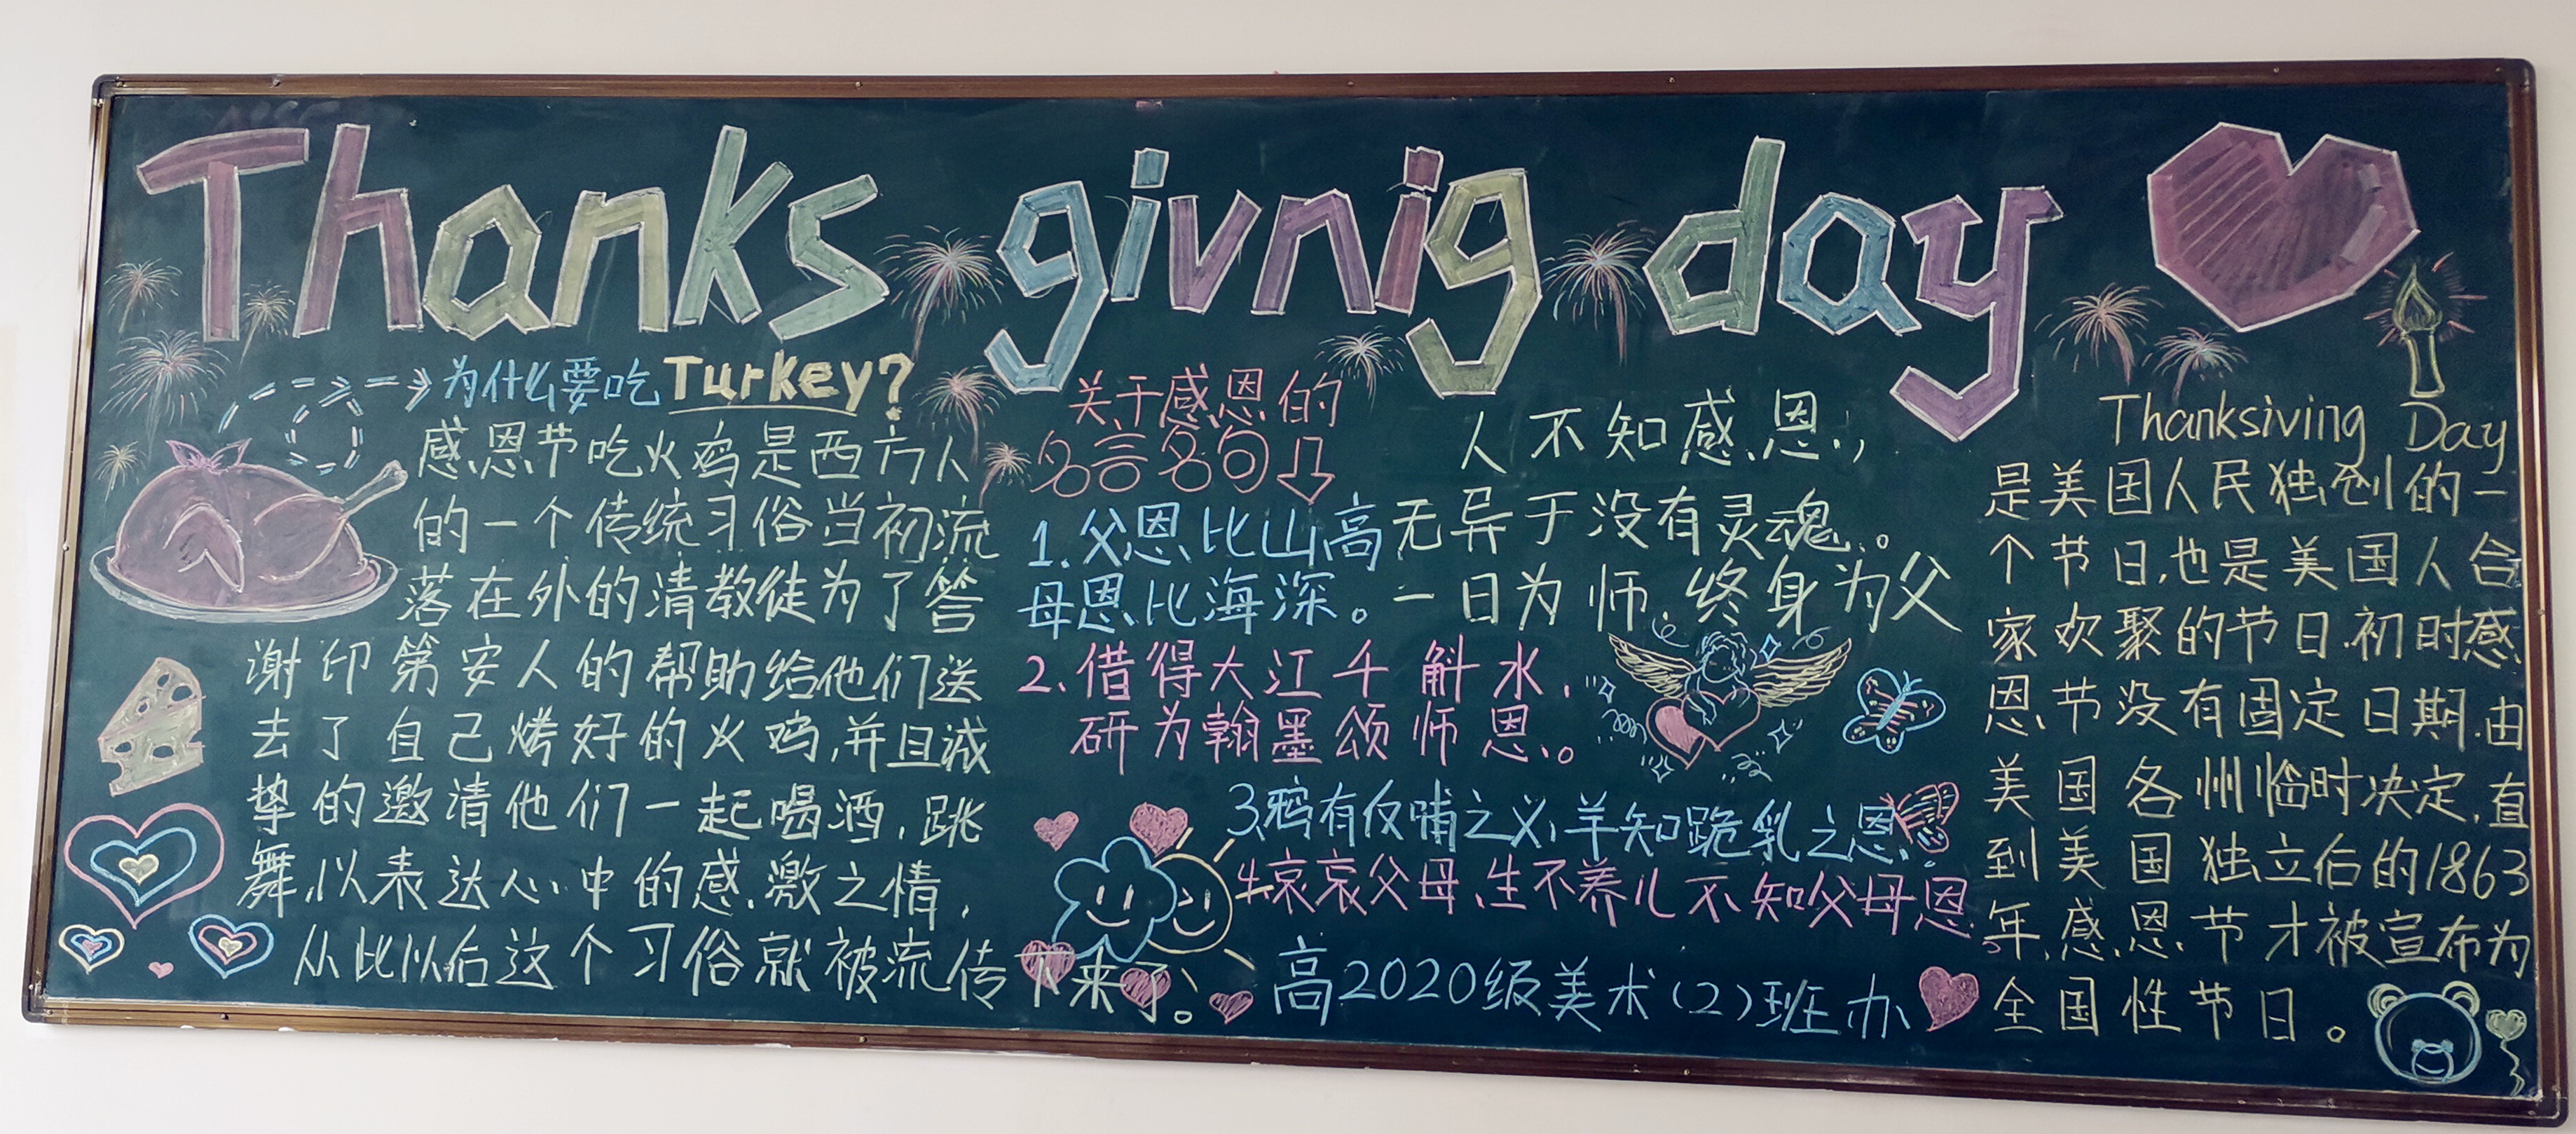 Thanks givnig day
为什么要吃Turkey?
感恩节吃火鸡是西方人
的一个传统习俗当初流
落在外的清教徒为了答
谢印第安人的帮助给他们送
去了自己烤好的火鸡,并且诚
挚的邀请他们一起喝酒,跳
舞,以表达心中的感激之情,
从此以后这个习俗就被流传下来了。
关于感恩的
名言名句
1.父恩比山高
母恩比海深。
人不知感恩,
无异于没有灵魂。
一日为师.终身为父
2.借得大江千斛水,
研为翰墨颂师恩。
3.鸦有反哺之义,羊知跪乳之恩
4.哀哀父母,生不养儿不知父母恩
高2020级美术(2)班办
Thanksiving Day
是美国人民独创的一
个节日,也是美国人合
家欢聚的节日.初时感
恩节没有固定日期.由
美国各州临时决定,直
到美国独立后的1863
年,感恩节才被宣布为
全国性节日。